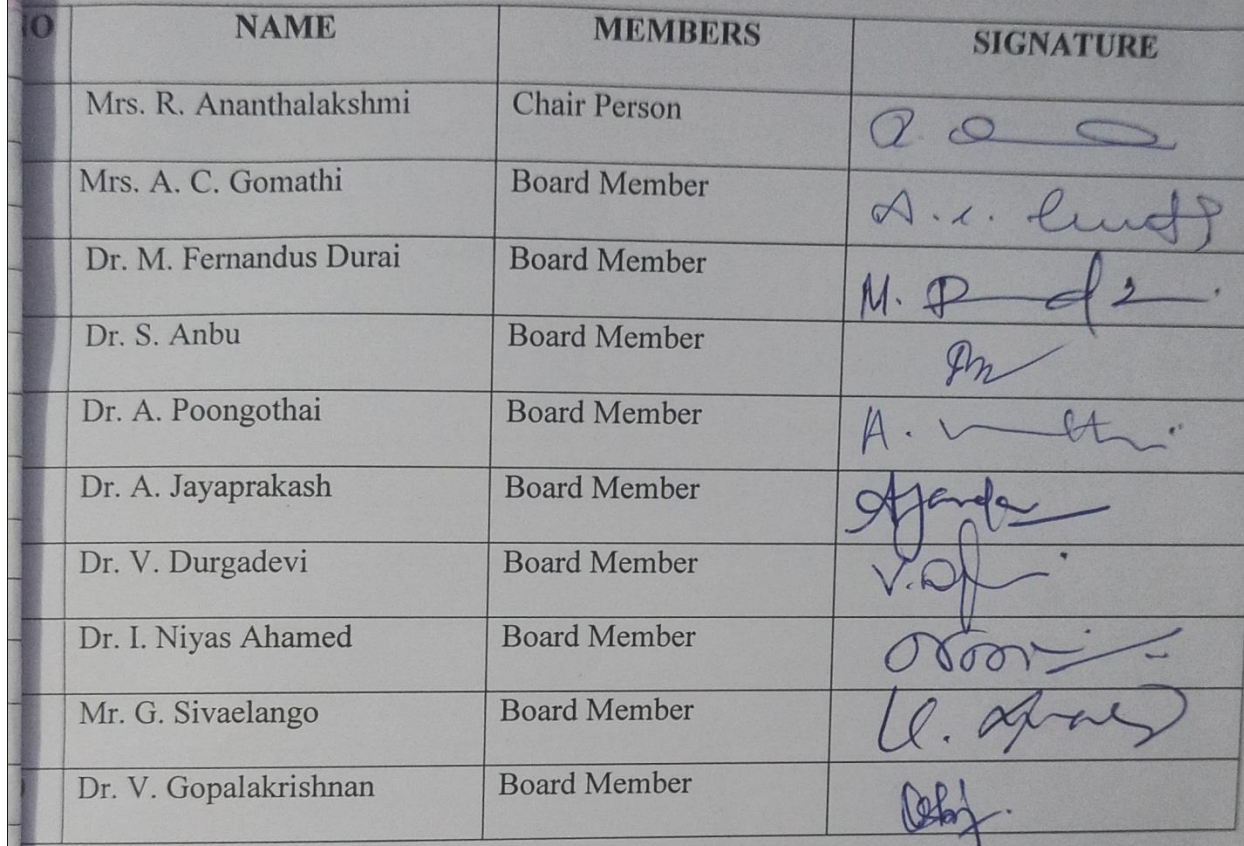 NO NAME MEMBERS SIGNATURE
Mrs. R. Ananthalakshmi Chair Person
Mrs. A. C. Gomathi Board Member A. C.
Dr. M. Fernandus Durai Board Member M.
Dr. S. Anbu Board Member
Dr. A. Poongothai Board Member A.
Dr. A. Jayaprakash Board Member
Dr. V. Durgadevi Board Member V.
Dr. I. Niyas Ahamed Board Member
Mr. G. Sivaelango Board Member
Dr. V. Gopalakrishnan Board Member